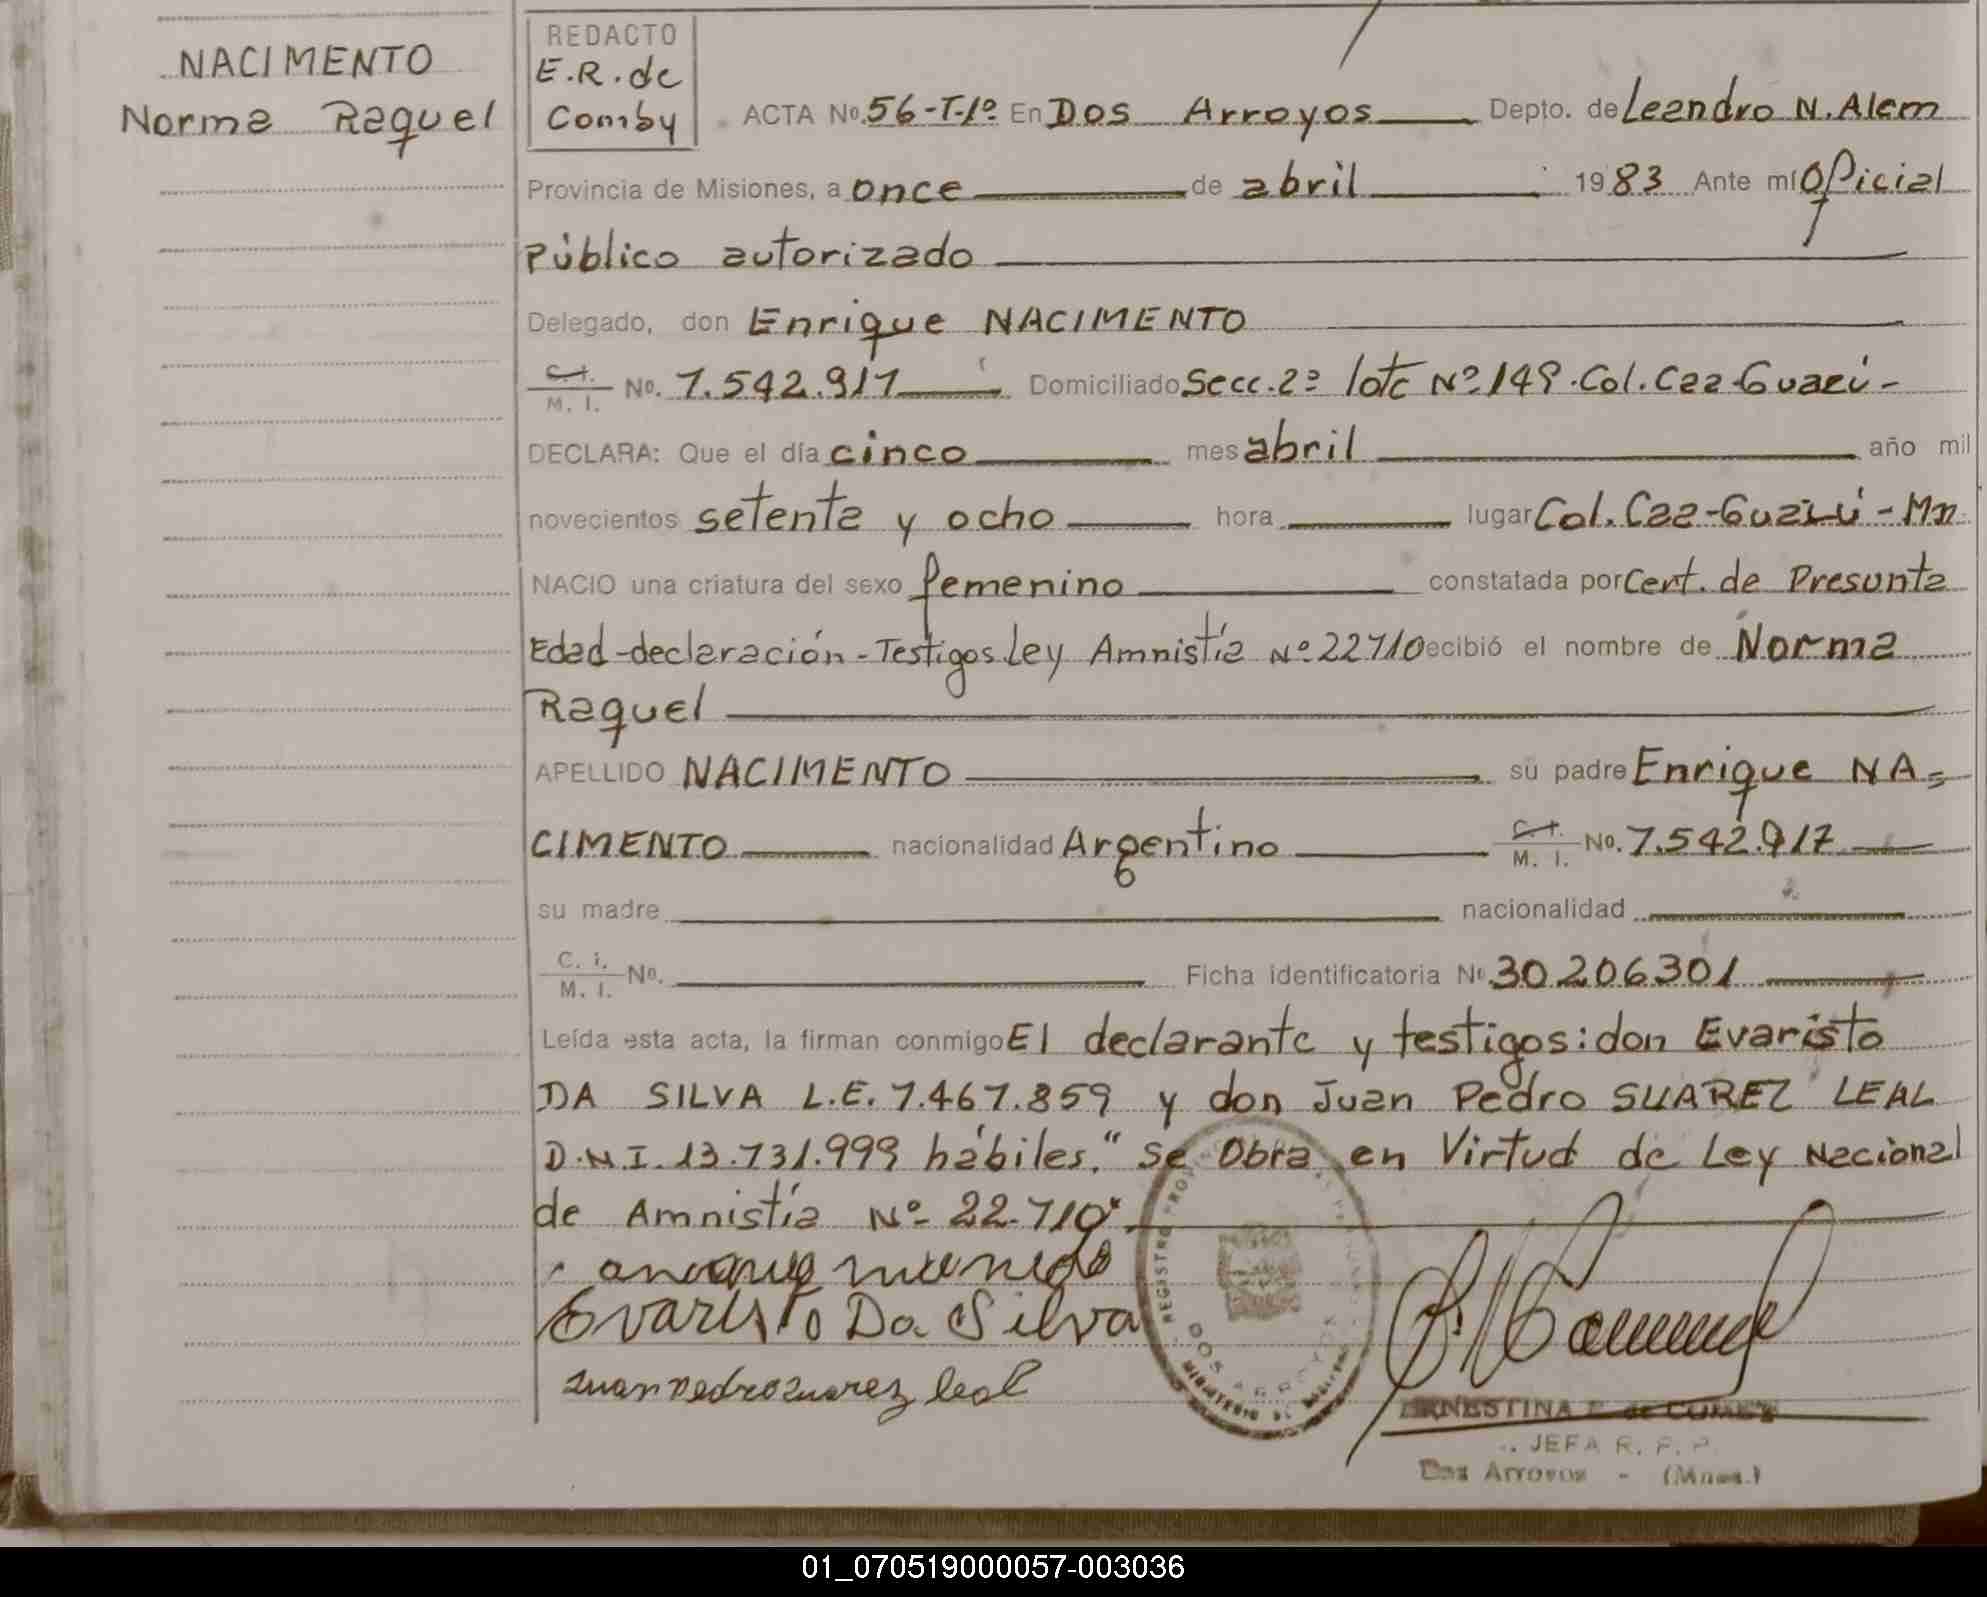 NACIMENTO
Norma Raquel
REDACTO
E.R. de
Comby
ACTA No. 56-T-1º En Dos Arroyos Depto. de Leandro N. Alem
Provincia de Misiones, a once de abril 1983 Ante mí Oficial
Público autorizado
Delegado, don Enrique NACIMENTO
C.I. / M. I. No. 7.542.917 Domiciliado Secc. 2º lote Nº 149. Col. Caa-Guazú-
DECLARA: Que el día cinco mes abril año mil
novecientos setenta y ocho hora lugar Col. Caa-Guazú - Mn
NACIO una criatura del sexo femenino constatada por Cert. de Presunta
Edad-declaración-Testigos Ley Amnistía Nº 22710 ecibió el nombre de Norma
Raquel
APELLIDO NACIMENTO su padre Enrique NA=
CIMENTO nacionalidad Argentino C.I. / M. I. No. 7.542.917
su madre nacionalidad
C. i. / M. I. No. Ficha identificatoria Nº 30.206.301
Leída esta acta, la firman conmigo El declarante y testigos: don Evaristo
DA SILVA L.E. 7.467.859 y don Juan Pedro SUAREZ LEAL
D.N.I. 13.731.999 hábiles." Se Obra en Virtud de Ley Nacional
de Amnistía Nº 22.710"
Evaristo Da Silva
Juan Pedro Suarez leal
REGISTRO PROVINCIAL
DOS ARROYOS
MINISTERIO DE
ERNESTINA R. de COMBY
JEFA R. P. P.
Dos Arroyos - (Mnes.)
01_070519000057-003036